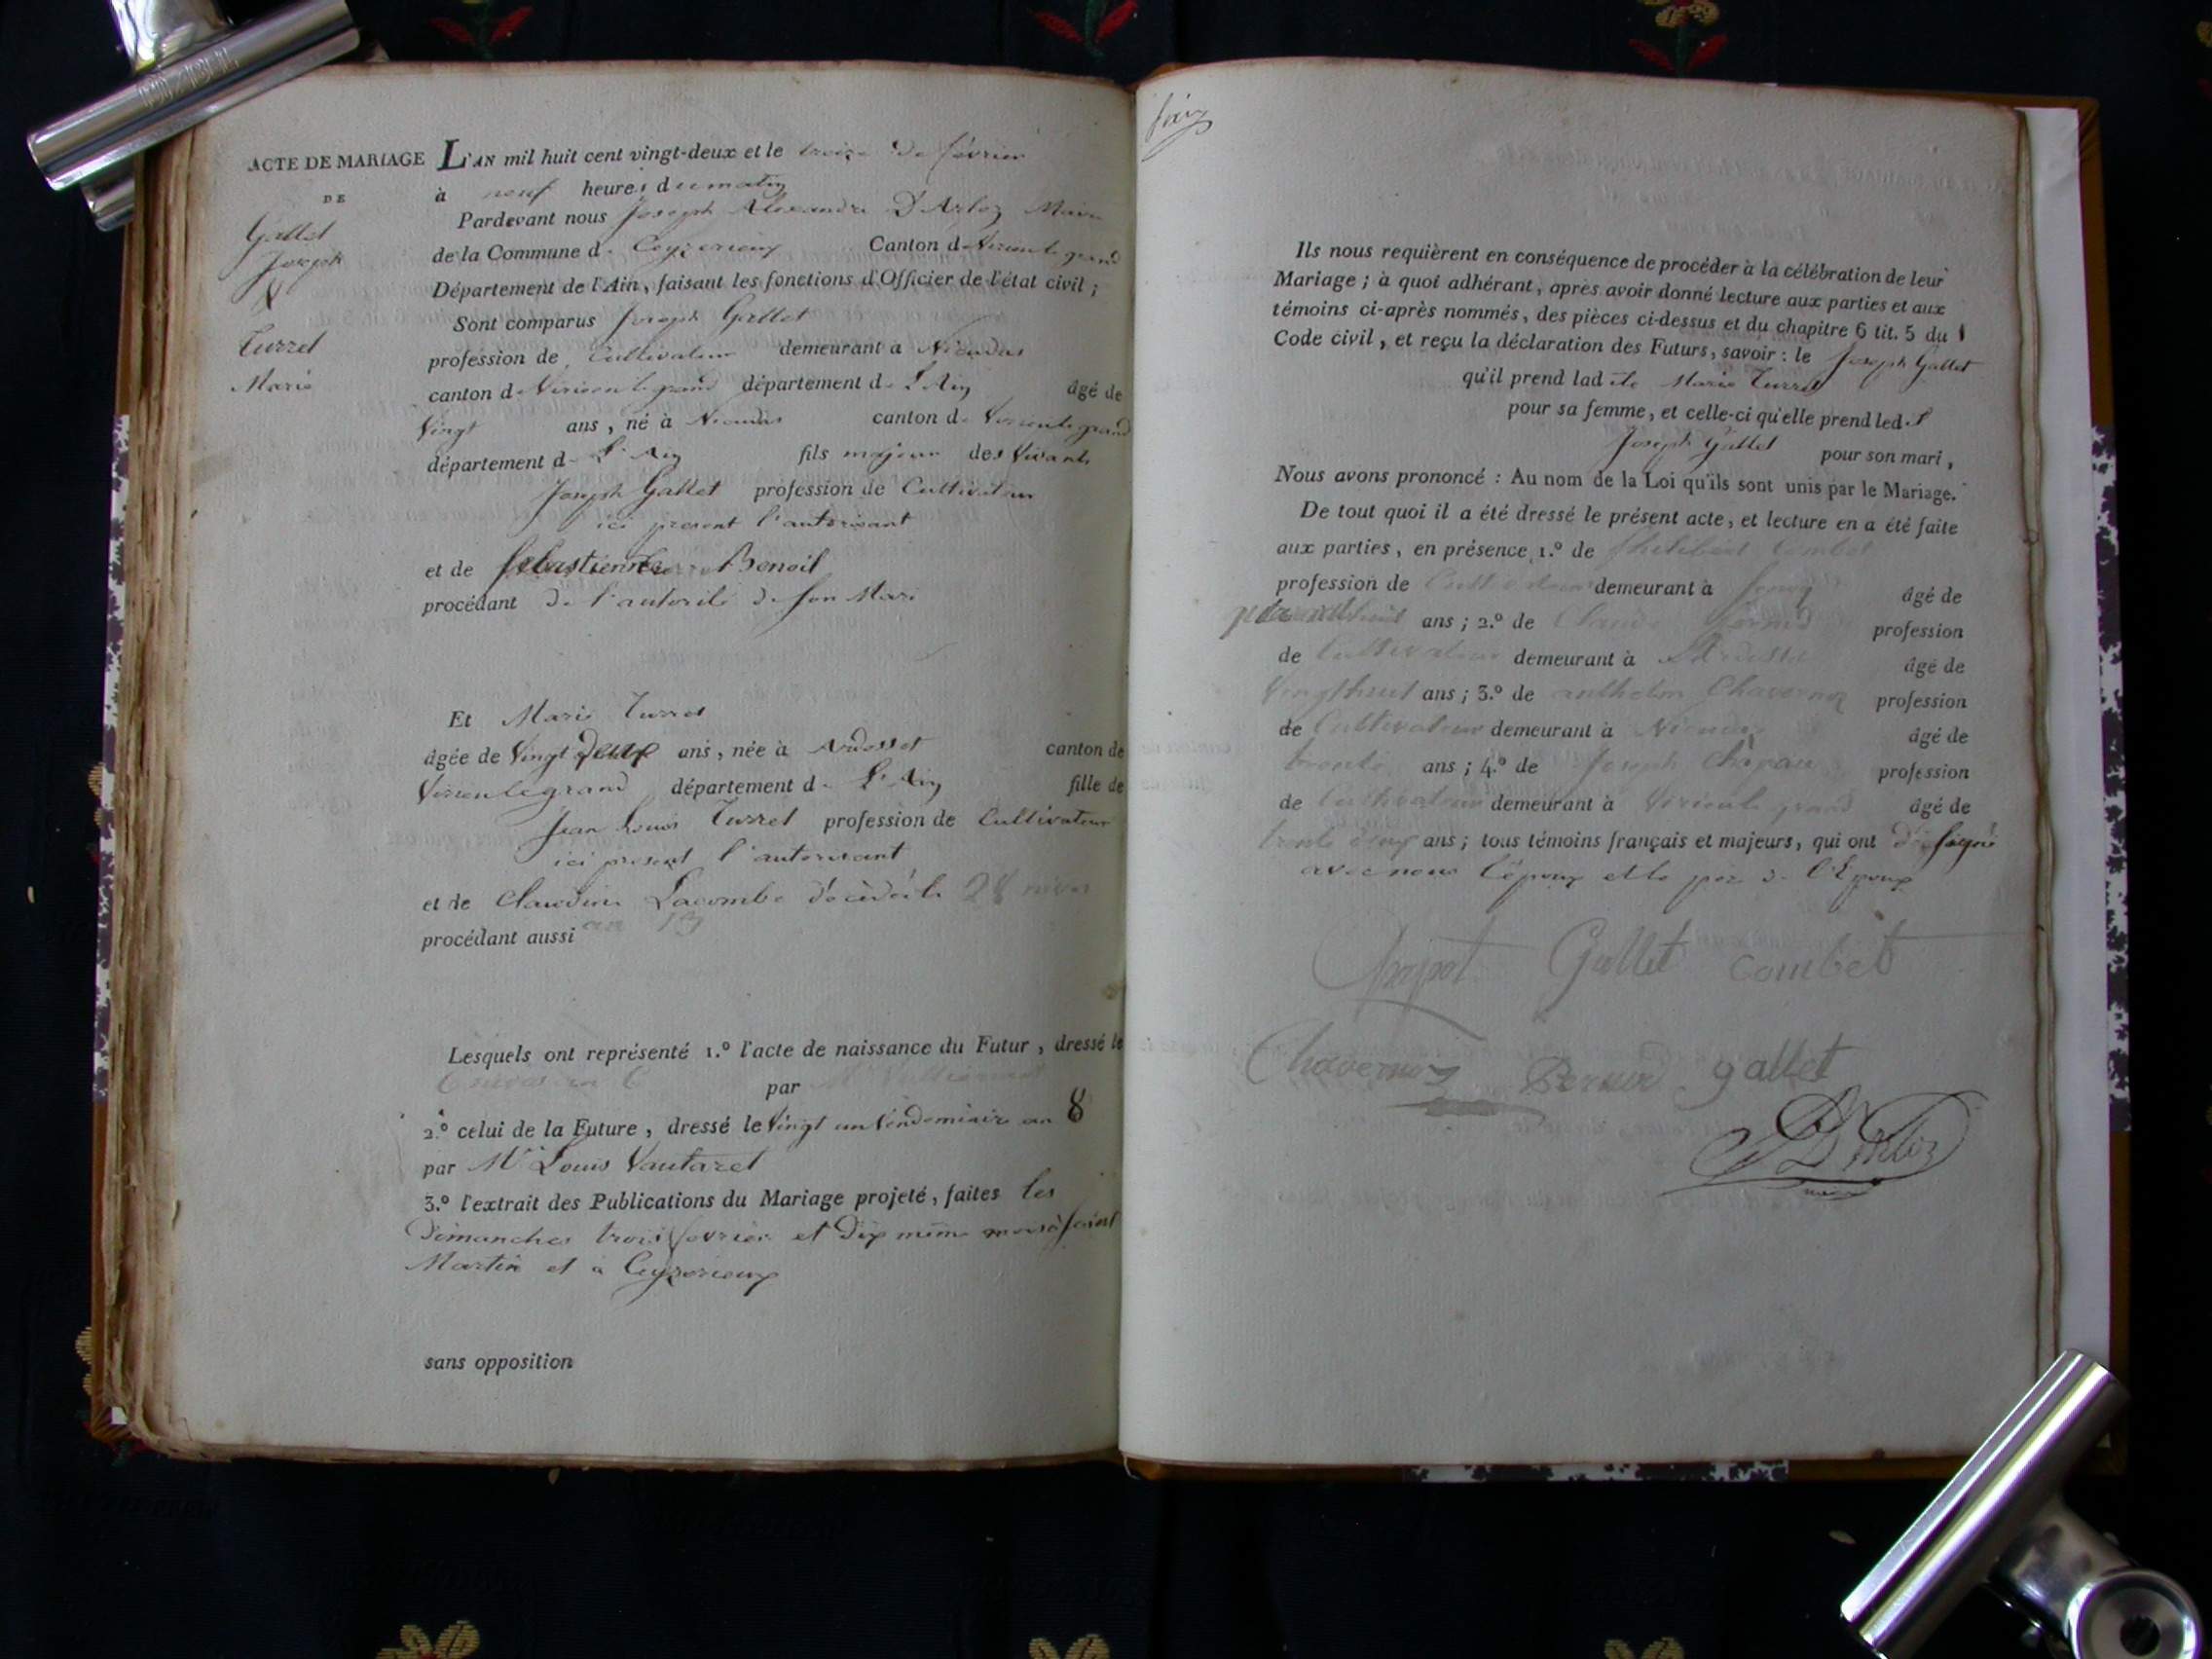 ACTE DE MARIAGE
DE
Gallet
Joseph
&
Turrel
Marie
L'AN mil huit cent vingt-deux et le treize de février
à neuf heures du matin
Pardevant nous Joseph Alexandre D'Arloz Maire
de la Commune de Ceyzerieux Canton de Virieu le grand
Département de l'Ain, faisant les fonctions d'Officier de l'état civil ;
Sont comparus Joseph Gallet
profession de Cultivateur demeurant à
canton de Virieu le grand département de L'Ain âgé de
Vingt ans, né à canton de Virieu le grand
département de L'Ain fils majeur des Vivants
Joseph Gallet profession de Cultivateur
ici present l'autorisant
et de Sebastienne Benoit
procédant de l'autorité de son Mari
Et Marie Turrel
âgée de Vingt deux ans, née à canton de
Virieu le grand département de L'Ain fille de
Jean Louis Turrel profession de Cultivateur
ici present l'autorisant
et de Claudine Lacombe décédée le 28 nivos
procédant aussi an 13
Lesquels ont représenté 1.º l'acte de naissance du Futur, dressé le
par
2.º celui de la Future, dressé le Vingt un Vendemiaire an 8
par Mr Louis Vautaret
3.º l'extrait des Publications du Mariage projeté, faites les
Dimanches trois fevrier et Dix même mois à saint
Martin et à Ceyzerieux
sans opposition
Ils nous requièrent en conséquence de procéder à la célébration de leur
Mariage ; à quoi adhérant, après avoir donné lecture aux parties et aux
témoins ci-après nommés, des pièces ci-dessus et du chapitre 6 tit. 5 du
Code civil, et reçu la déclaration des Futurs, savoir : le Joseph Gallet
qu'il prend lad ite Marie Turrel
pour sa femme, et celle-ci qu'elle prend led. t
Joseph Gallet pour son mari,
Nous avons prononcé : Au nom de la Loi qu'ils sont unis par le Mariage.
De tout quoi il a été dressé le présent acte, et lecture en a été faite
aux parties, en présence 1.º de Philibert Combet
profession de Cultivateur demeurant à âgé de
ans ; 2.º de Claude profession
de Cultivateur demeurant à âgé de
Vingt huit ans ; 3.º de anthelm Chavernoz profession
de Cultivateur demeurant à âgé de
trente ans ; 4.º de Joseph profession
de Cultivateur demeurant à Virieu le grand âgé de
trente ans ; tous témoins français et majeurs, qui ont signé
avec nous l'époux et le père de l'Epoux
Gallet Combet
Chavernoz gallet
D'Arloz